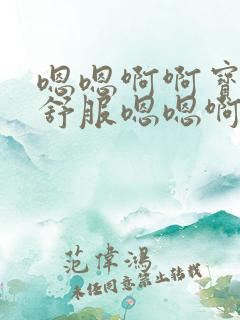 嗯嗯啊啊宝
舒服嗯嗯啊
范偉鸿
未经同意禁止转载